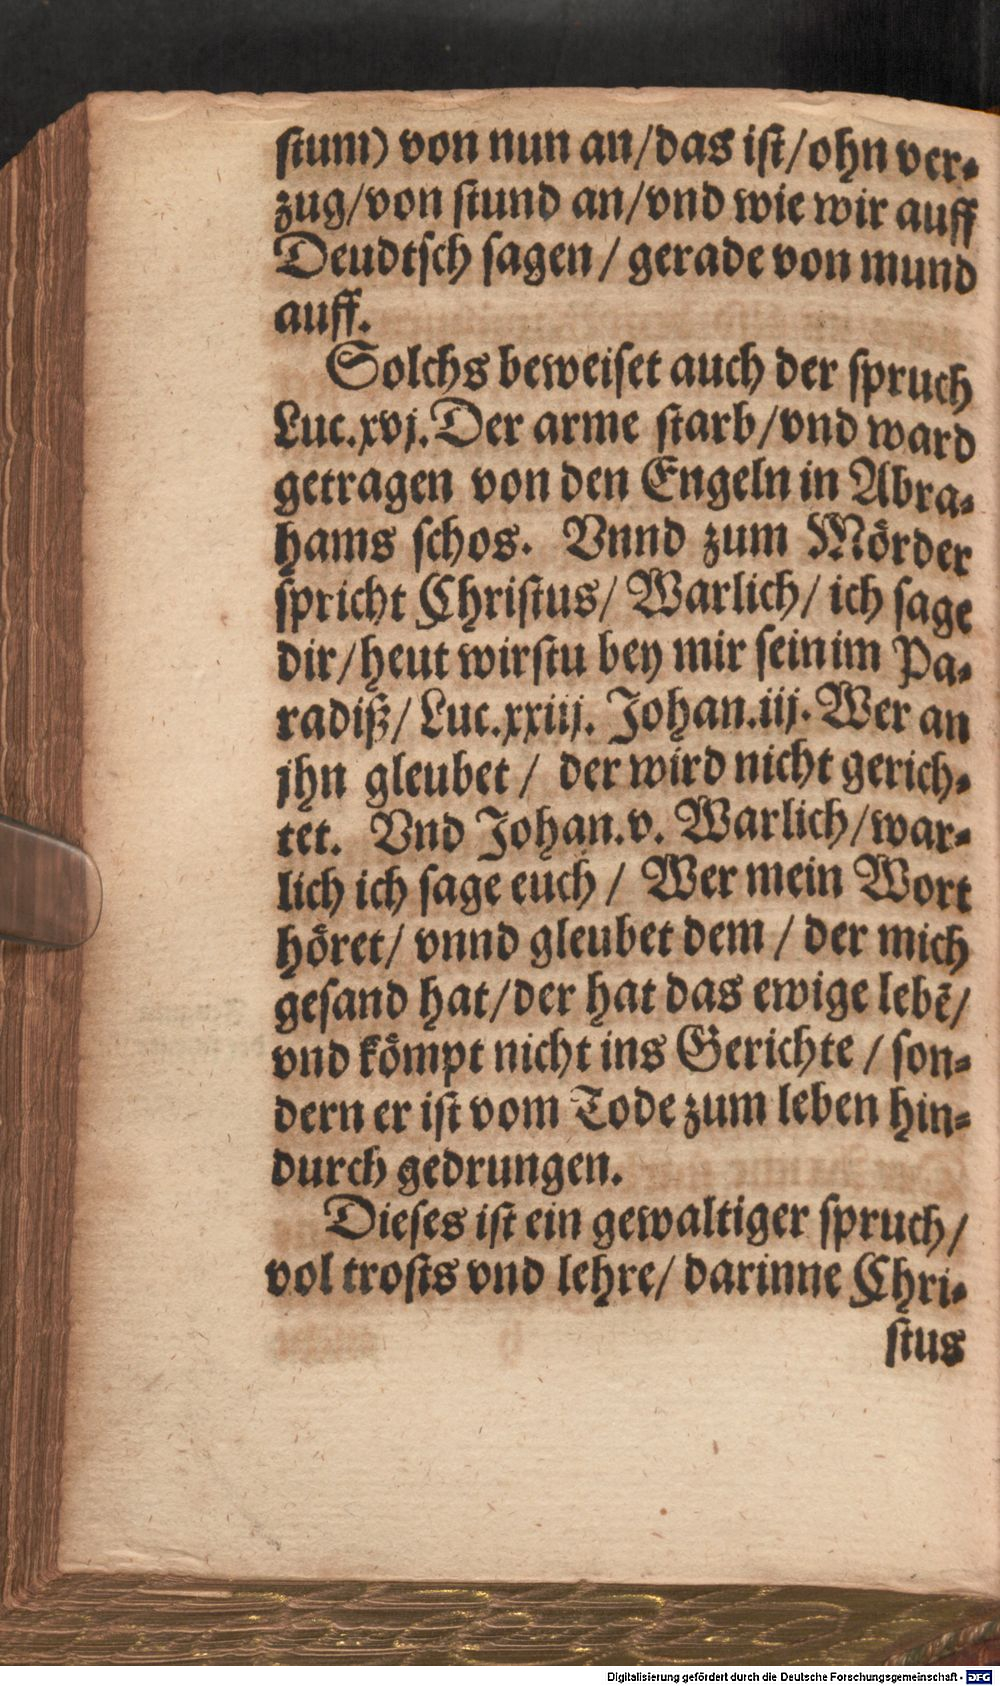 stum) von nun an/das ist/ohn ver-
zug/von stund an/vnd wie wir auff
Deudtsch sagen / gerade von mund
auff.
Solchs beweiset auch der spruch
Luc.xvj. Der arme starb/vnd ward
getragen von den Engeln in Abra-
hams schos. Vnnd zum Mörder
spricht Christus/ Warlich/ ich sage
dir/heut wirstu bey mir sein im Pa-
radiß/ Luc.xxiij. Johan.iij. Wer an
jhn gleubet / der wird nicht gerich-
tet. Vnd Johan.v. Warlich/war-
lich ich sage euch / Wer mein Wort
höret/ vnnd gleubet dem / der mich
gesand hat/der hat das ewige lebē/
vnd kömpt nicht ins Gerichte / son-
dern er ist vom Tode zum leben hin-
durch gedrungen.
Dieses ist ein gewaltiger spruch/
vol trosts vnd lehre/ darinne Chri-
stus
Digitalisierung gefördert durch die Deutsche Forschungsgemeinschaft - DFG